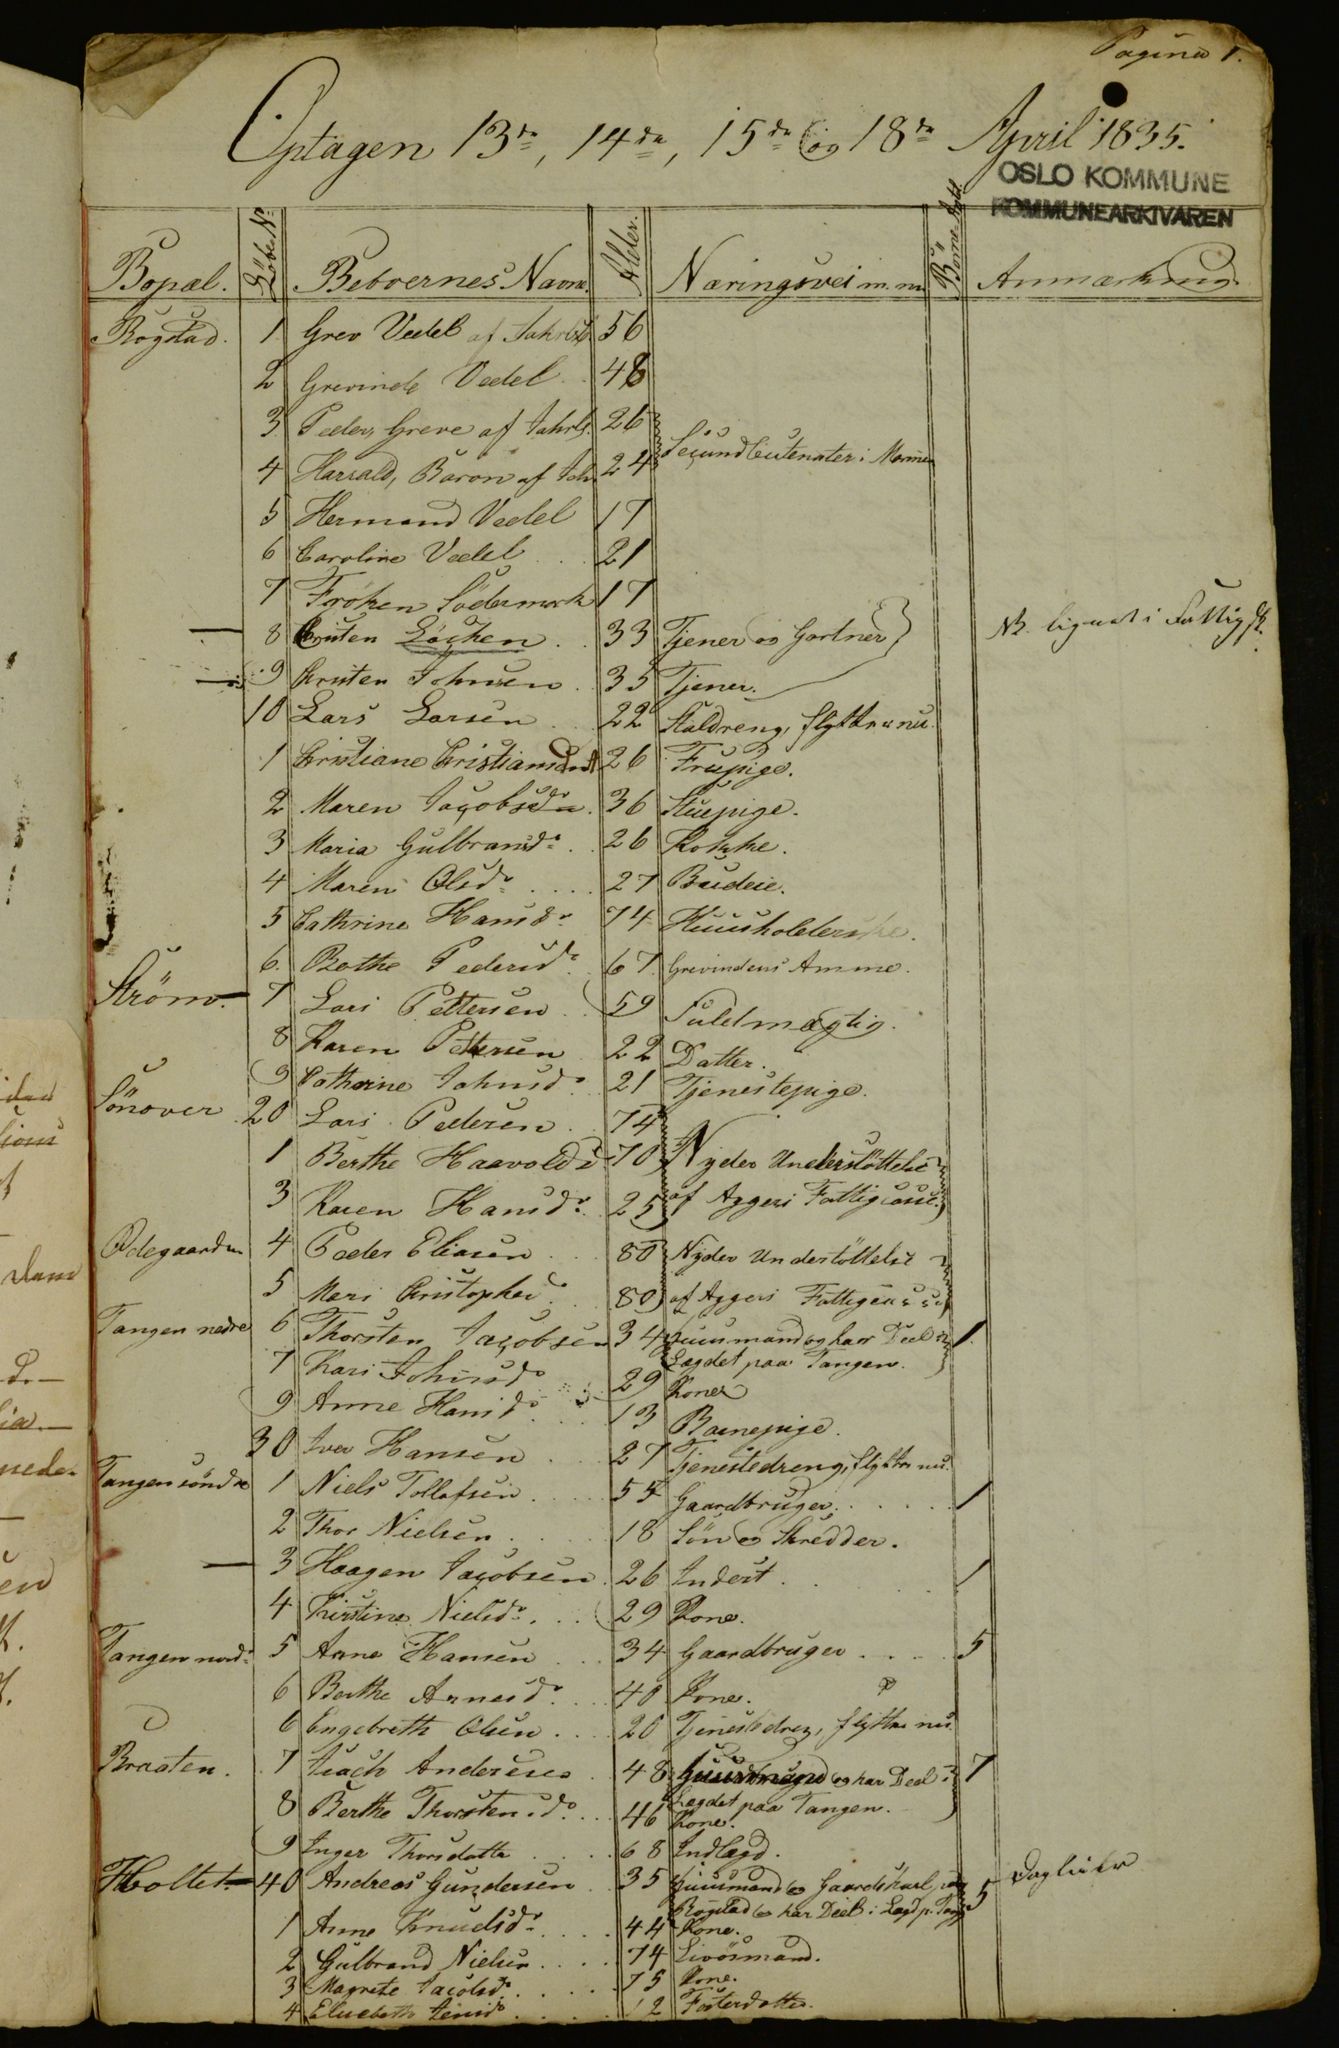 Pagina 1.
Optagen 13de, 14de, 15de og 18de April 1835.
OSLO KOMMUNE
KOMMUNEARKIVAREN
Bopæl. Löbe No Beboernes Navne. Alder. Næringsvei m. m. Börne Anmærkning.
Bogstad. 1 Grev Vedel af Jahrlsb 56
2 Grevinde Vedel 48
3 Peder, Greve af Jahrlsb. 26
Secundlieutenater i Marinen
4 Harrald, Baron af Jah. 24
5 Hermand Vedel 17
6 Caroline Vedel 21
7 Fröken Södermark 17
8 Christen Löchen 33 Tjener og Gartner Nb. lignet i
9 Christen Johnsen 35 Tjener.
10 Lars Larsen 22 Staldreng, flytter nu.
1 Christiane Christiansdatt 26 Frupige.
2 Maren Jacobsdr 36 Stuepige.
3 Maria Gulbransdr 26 Kokke.
4 Maren Olsdr 27 Budeie.
5 Cathrine Hansdr 74 Huusholderske.
6. Berthe Pedersdr 67. Grevindens Amme.
Ström. 7 Lars Pettersen 59 Fuldmægtig.
8 Karen Pettersen 22 Datter.
9 Catharine Johnsdr 21 Tjenestepige.
Sönover 20 Lars Pedersen 74
1 Berthe Haavoldsd 70 Nyder Understöttelse
3 Karen Hansdr 25 af Aggers Fattigcasse.
Ödegaarden 4 Peder Eliasen 80 Nyder Understöttelse
5 Mari Christophersd 80 af Aggers Fattigcasse
Tangen nedre 6 Thorsten Jacobsen 34 Huusmand og har Deel i 1.
Lægdet paa Tangen.
7 Kari Johnsdr 29 Kone
9 Anne Hansdr 13 Barnepige.
30 Iver Hansen 27 Tjenestedreng, flytter nu.
Tangen söndre 1 Niels Tollefsen 55 Gaardbruger 1
2 Thor Nielsen 18 Sön og Skredder.
3 Haagen Jacobsen 26 Inderst 1
4 Kirstine Nielsdr 29 Kone.
Tangen nord 5 Arne Hansen 34 Gaardbruger 5
6 Berthe Arnesdr 40 Kone.
6 Engebreth Olsen 20 Tjenestedreng, flytter nu.
Braaten. 7 Isach Andersen 48 Huusmand og har Deel i 7
Lægdet paa Tangen.
8 Berthe Thorstensdr 46 Kone.
9 Inger Thorsdatter 68 Indlægd.
Holtet 40 Andreas Gundersen 35 Huusmand og Gaardskarl paa 5
Bogstad og har Deel i Lægd p. Tang
1 Anne Knudsdr 44 Kone.
2 Gulbrand Nielsen 74 Livösmand.
3 Magrete Jacobsdr 75 Kone.
4 Elisabeth Jensdr 12 Fosterdatter.